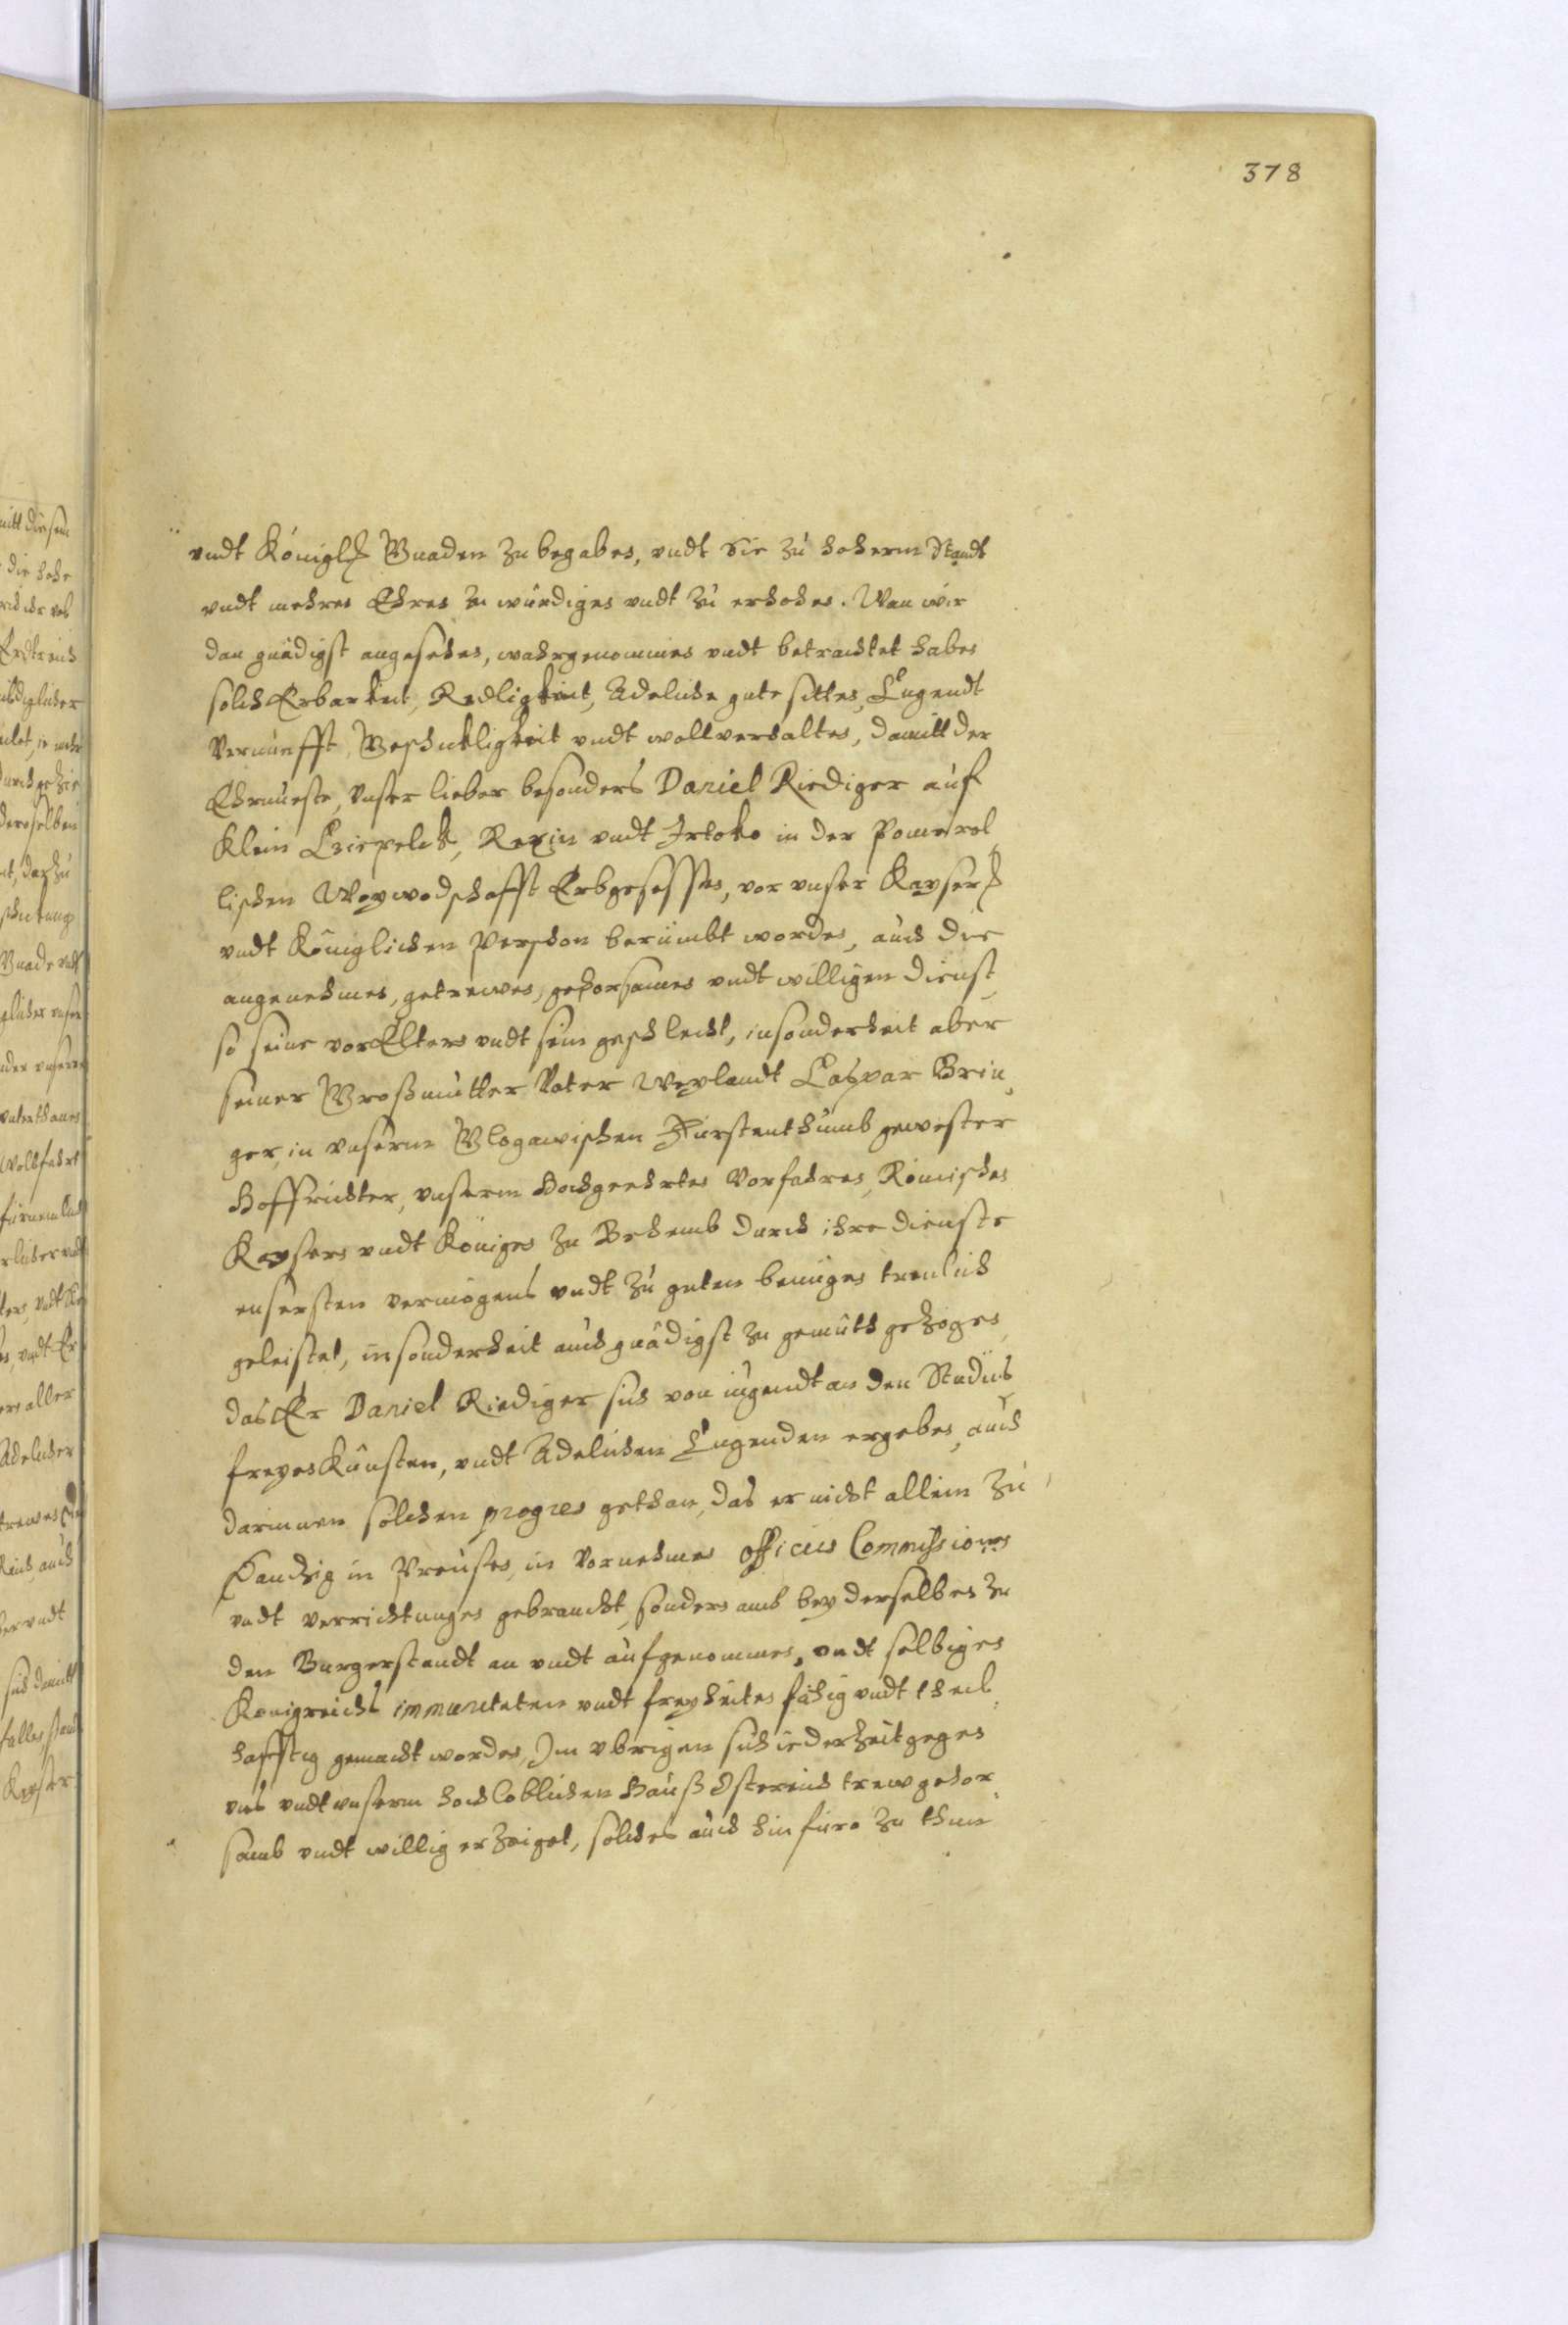 378
vndt Königl. Gnaden zu begaben, vndt Sie zu hoherm Standt
vndt mehren Ehren zu würdigen vndt zu erhohen. Wan wir
dan gnädigst angesehen, wahrgenommen vndt betrachtet haben
solch Erbarkeit, Redligkeit, Adeliche gute sitten, Tugendt
Vernunfft, Geschickligkeit vndt wollverhalten, damitt der
Ehrnueste, vnser lieber besonders Daniel Riediger auf
Klein Cziepelck, Rexin vndt in der Pomerel
lischen Woywodschafft Erbgesessen, vor vnser Kayserl.
vndt Königlichen Perschon berümbt worden, auch die
angenehmen, getrewen, gehorsamen vndt willigen dienst,
so seine vor Eltern vndt sein geschlecht, insonderheit aber
seiner Großmutter Vater Weylandt Caspar Brin¸
ger, in vnserm Glogawischen Fürstenthumb gewester
Hoffrichter, vnserm Hochgeehrten Vorfahren, Römischen
Kaysern vndt Königen zu Behemb durch ihre dienste
eusersten vermögens vndt zu guten benügen treulich
geleistet, insonderheit auch gnädigst zu gemüth gezogen,
das Er Daniel Riediger sich von iugendt an den Studiis
freyen Künsten, vndt Adelichen Tugenden ergeben, auch
darinnen solchen progres gethan, das er nicht allein zu
Dantzig in Preußen, in Vornehmen Officiis Commissionen
vndt verrichtungen gebraucht, sondern auch bey derselben zu
den Burgerstandt an vndt aufgenommen, vndt selbiges
Königreichs immuniteten vndt freyheiten fähig vndt theil¸
hafftig gemacht worden, Im vbrigen sich iederzeit gegen
vns vndt vnserm hochloblichen Hauß Östereich trew gehor¸
samb vndt willig erzeiget, solches auch hinfüro zu thun